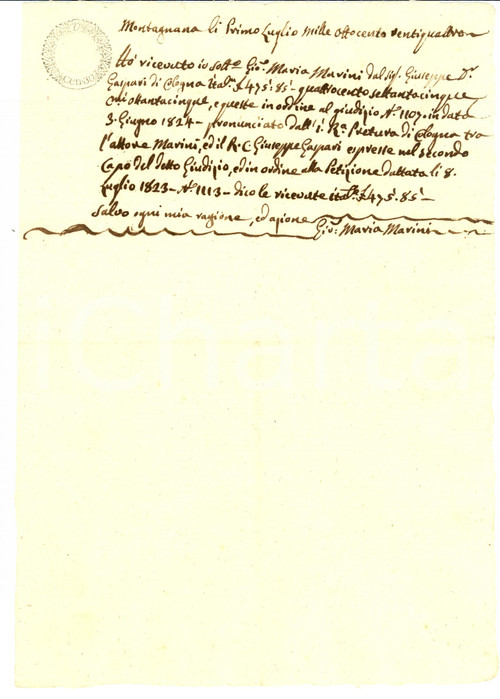 Montagnana li Primo Luglio Mille Ottocento ventiquattro
Hò ricevuto io sottº Gio. Maria Marini dal Sig. Giuseppe Dr.
Gaspari di Cologna Ital.e £ 475:85 - quattrocento settantacinque
C.mi ottantacinque, e queste in ordine al giudizio Nº 1107 - in data
3 Giugno 1824 - pronunciato dall' i. R.a Pretura di Cologna tra
l'attore Marini, ed il R. C. Giuseppe Gaspari espresse nel secondo
Capo del detto Giudizio, ed in ordine alla Petizione dattata li 8.
Luglio 1823 - Nº 1113 - dico le ricevute ital.e £ 475:85 -
Salvo ogni mia ragione, ed azione
Gio: Maria Marini
iCharta